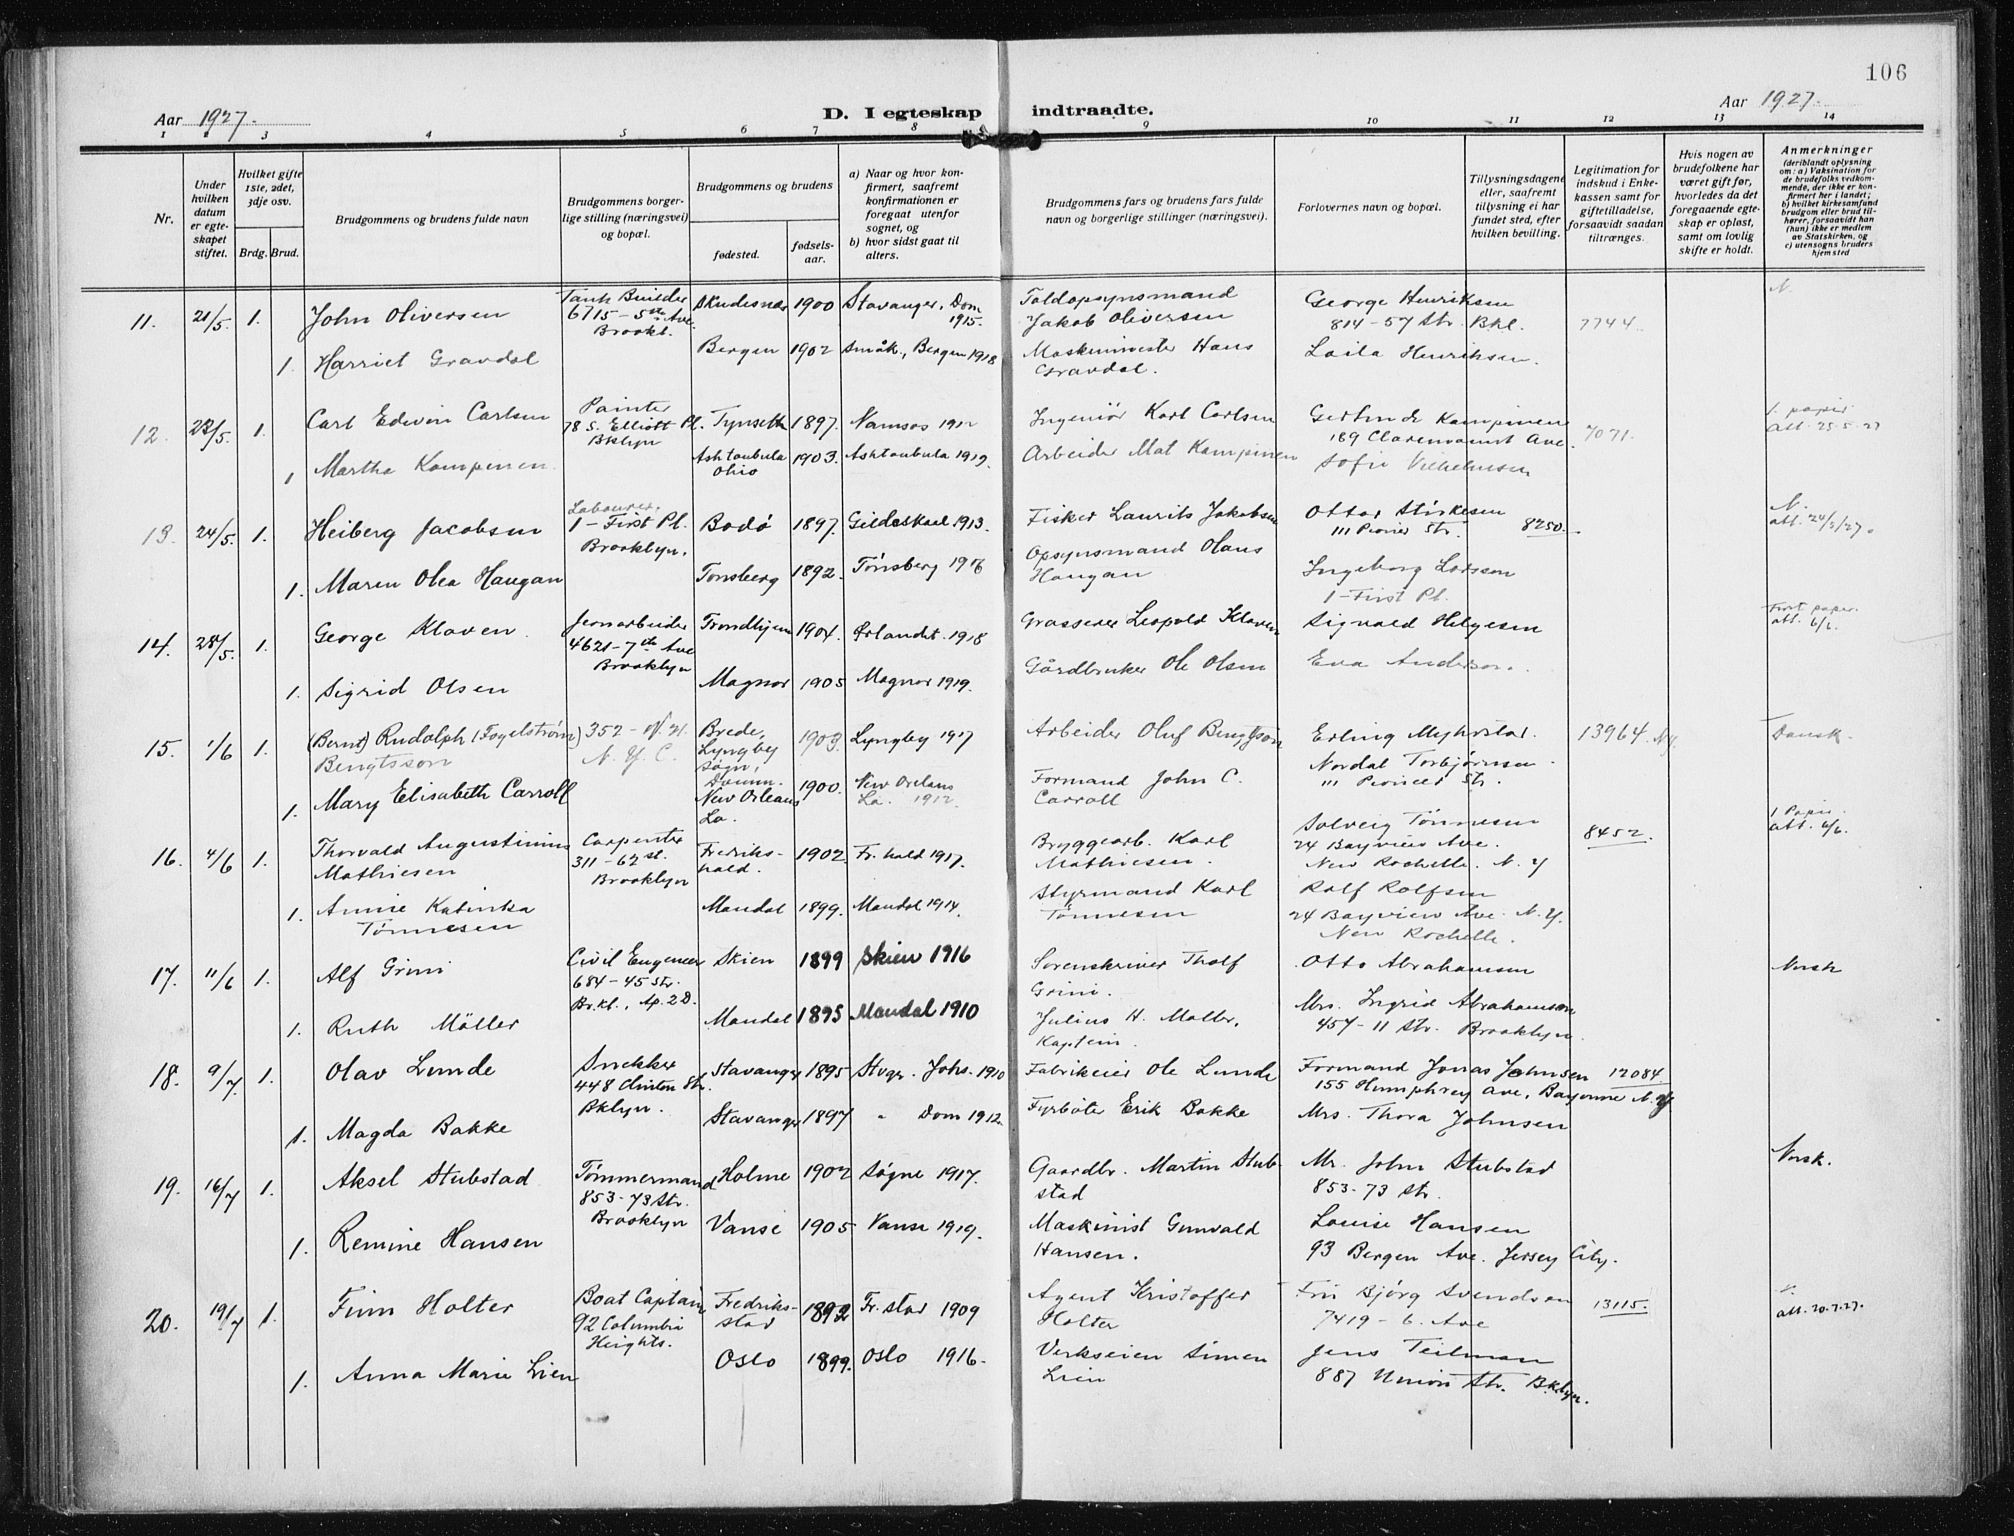 106
Aar 1927.
D. I egteskap indtraadte.
Aar 1927.
1 2 3 4 5 6 7 8 9 10 11 12 13 14
Nr.
Under hvilken datum er egteskapet stiftet.
Hvilket gifte 1ste, 2det, 3dje osv.
Brdg. Brud.
Brudgommens og brudens fulde navn
Brudgommens borgerlige stilling (næringsvei) og bopæl.
Brudgommens og brudens
fødested.
fødselsaar.
a) Naar og hvor konfirmert, saafremt konfirmationen er foregaat utenfor sognet, og
b) hvor sidst gaat til alters.
Brudgommens fars og brudens fars fulde navn og borgerlige stillinger (næringsvei).
Forlovernes navn og bopæl.
Tillysningsdagene eller, saafremt tillysning ei har fundet sted, efter hvilken bevilling.
Legitimation for indskud i Enkekassen samt for giftetilladelse, forsaavidt saadan tiltrænges.
Hvis nogen av brudefolkene har været gift før, hvorledes da det foregaaende egteskap er opløst, samt om lovlig skifte er holdt.
Anmerkninger
(deriblandt oplysning om: a) Vaksination for de brudefolks vedkommende, der ikke er konfirmert her i landet; b) hvilket kirkesamfund brudgom eller brud tilhører, forsaavidt han (hun) ikke er medlem av Statskirken, og c) utensogns bruders hjemsted
11. 21/5. 1. John Oliversen
Tank Builder
6715 - 5th Ave.
Brookl.
Skudesnes 1900 Stavanger, Dom 1915.
Toldopsynsmand
Jakob Oliversen
George Henriksen
814 - 57 Str. Bkl.
7744.
N.
1. Harriet Gravdal
Bergen 1902 Småk., Bergen 1918
Maskinmester Hans
Gravdal.
Laila Henriksen.
12. 23/5. 1. Carl Edwin Carlsen
Painter
78 S. Elliott Pl.
Bklyn
Tynseth 1897. Namsos 1912
Ingeniør Karl Carlsen
Kampinen
169 Ave.
7071.
1. papir
att. 25.5.27
1 Martha Kampinen.
Ashtabula
Ohio
1903. Ashtabula 1919.
Arbeider Mat Kampinen
Sofie Vilhelmsen
13. 24/5. 1. Heiberg Jacobsen
Labourer.
1 - First Pl.
Brooklyn.
Bodø 1897. Gildeskaal 1913.
Fisker Laurits Jakobsen
Ottar Stirkesen
111 Pionier Str.
8250.
N.
att. 24/5/27.
1. Maren Olea Haugan
Tønsberg 1892. Tønsberg 1906
Opsynsmand Olaus
Haugan
Ingeborg Larsson
1 - First Pl.
14. 28/5. 1. George Klaven.
Jernarbeider
4621 - 7th Ave
Brooklyn
Trondhjem 1904. Ørlandet. 1918
Grosserer Leopold Klaven
Sigvald Helgesen
First paper.
att. 6/6.
1. Sigrid Olsen
Magnor 1905 Magnor 1919.
Gårdbruker Ole Olsen
Eva Anderson.
15. 1/6 1. (Bernt) Rudolph (Fogelstrøm)
Bengtsson
352 -
N. Y. C.
Brede,
Lyngby
Søgn,
Danm.
1903. Lyngby 1917
Arbeider Oluf Bengtsson
Erling Myhrstad.
13964. N.Y.
Dansk.
1. Mary Elisabeth Carroll
New Orleans
La.
1900. New Orleans
La. 1912.
Formand John C.
Carroll
Nordal Torbjørnsen
111 Pioneer Str.
16. 4/6 1. Thorvald Augustinius
Mathiesen
Carpenter
311 - 62 st.
Brooklyn
Fredrikshald. 1902 Fr. hald 1917.
Bryggearb. Karl
Mathiesen.
Solveig Tønnesen
24 Bayview Ave.
New Rochelle. N. Y
8452.
1 Papir
att. 6/6.
1. Annie Katinka
Tønnesen
Mandal 1899. Mandal 1914.
Styrmand Karl
Tønnesen
Rolf Rolfsen
24 Bayview Ave. N. Y.
New Rochelle.
17. 11/6 1. Alf Grini
Civil Engeneer
684 - 45 Str.
Br.kl., Ap. 2D.
Skien 1899 Skien 1916
Sorenskriver Tholf
Grini.
Otto Abrahamsen
Norsk
1. Ruth Möller
Mandal 1895 Mandal 1910
Julius H. Møller,
Kaptein.
Mrs. Ingrid Abrahamsen
457 - 11 Str. Brooklyn.
18. 9/7 1. Olav Lunde
Snekker
448 Clinton Str.
Bklyn.
Stavanger 1895 Stvgr. Johs. 1910
Fabrikeier Ole Lunde
Formand Jonas Johnsen
155 Humphrey Ave, Bayonne N. Y
12084
1. Magda Bakke
Stavanger 1897 " Dom 1912.
Fyrbøter Erik Bakke
Mrs. Thora Johnsen
19. 16/7 1. Aksel Stubstad
Tømmermand
853 - 73 Str.
Brooklyn
Holme 1902 Søgne 1917.
Gaardbr. Martin Stubstad
Mr. John Stubstad
853 - 73 str.
Norsk.
1. Remine Hansen
Vanse 1905 Vanse 1919.
Maskinist Gunvald
Hansen.
Louise Hansen
93 Bergen Ave. Jersey City.
20. 19/7 1. Finn Holter
Boat Captain
92 Columbia
Heights.
Fredrikstad 1892 Fr. stad 1909
Agent Kristoffer
Holter
Fru Bjørg Svendsen
7419 - 6. Ave
13115.
att. 20.7.27.
1. Anna Marie Lien
Oslo 1899. Oslo 1916.
Verkseien Simen
Lien
Jens Teilman
887 Union Str. Bklyn.